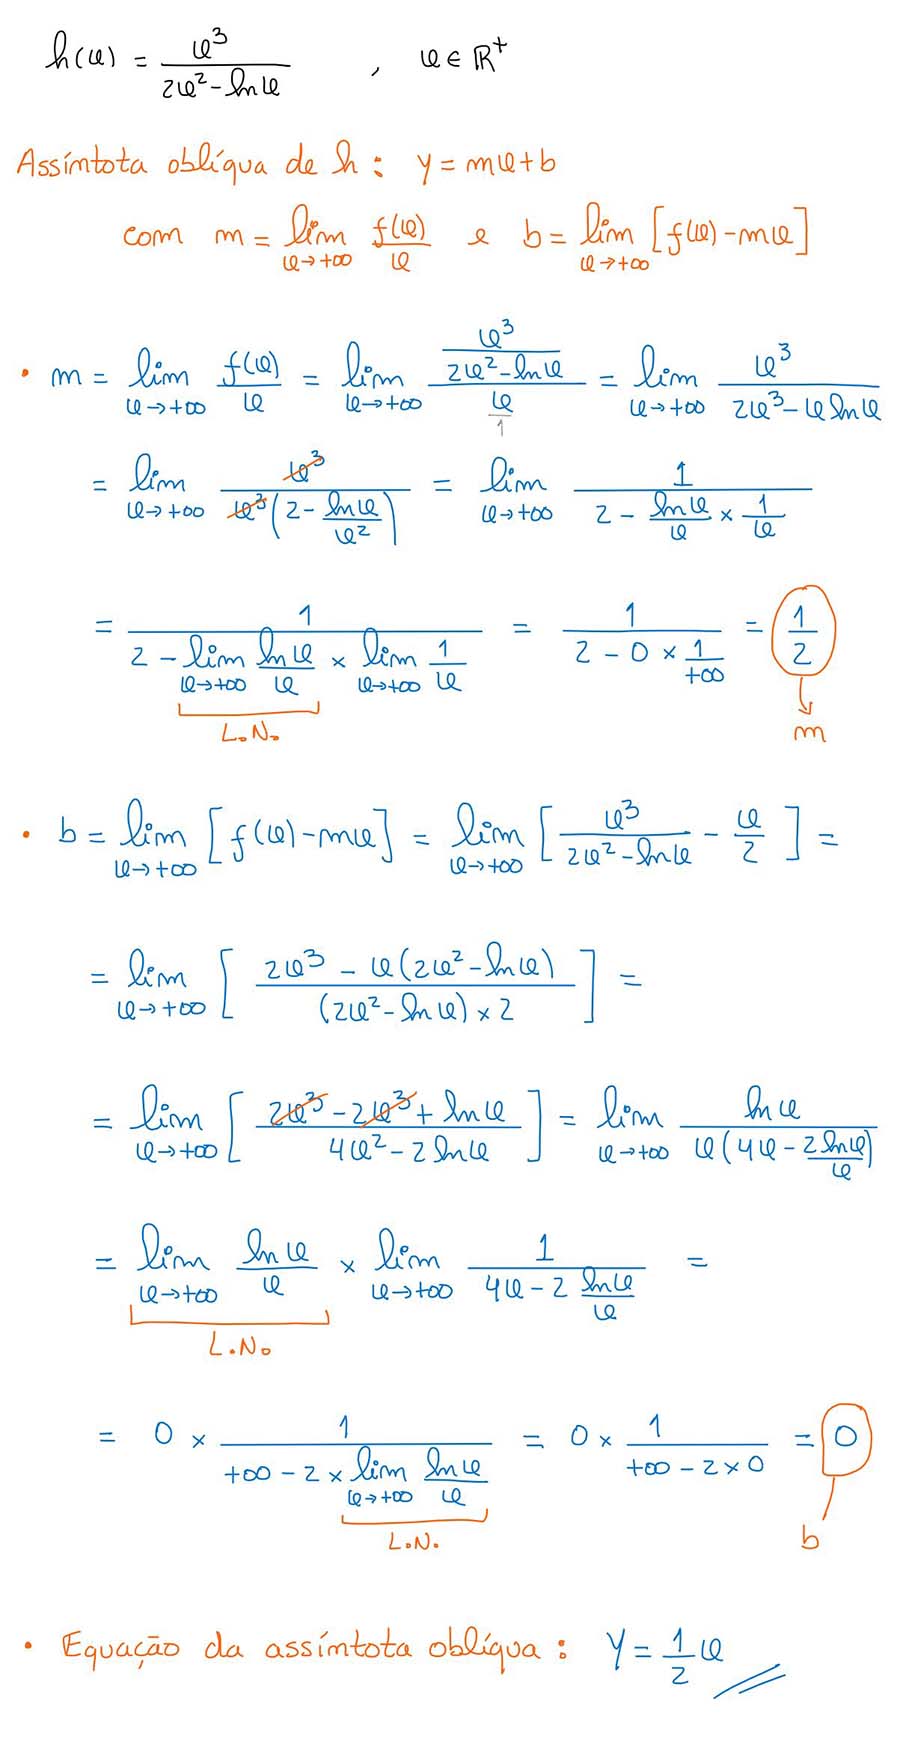 h(x) = x³/(2x² - ln x) , x ∈ ℝ⁺
Assíntota oblíqua de h : y = mx + b
com m = lim_{x→+∞} f(x)/x e b = lim_{x→+∞} [f(x) - mx]
• m = lim_{x→+∞} f(x)/x = lim_{x→+∞} (x³/(2x² - ln x))/(x/1) = lim_{x→+∞} x³/(2x³ - x ln x)
= lim_{x→+∞} x³/(x³(2 - ln x/x²)) = lim_{x→+∞} 1/(2 - ln x/x × 1/x)
= 1/(2 - lim_{x→+∞} ln x/x × lim_{x→+∞} 1/x) = 1/(2 - 0 × 1/+∞) = 1/2
L.N. m
• b = lim_{x→+∞} [f(x) - mx] = lim_{x→+∞} [x³/(2x² - ln x) - x/2] =
= lim_{x→+∞} [(2x³ - x(2x² - ln x))/((2x² - ln x) × 2)] =
= lim_{x→+∞} [(2x³ - 2x³ + ln x)/(4x² - 2 ln x)] = lim_{x→+∞} ln x/(x(4x - 2 ln x/x))
= lim_{x→+∞} ln x/x × lim_{x→+∞} 1/(4x - 2 ln x/x) =
L.N.
= 0 × 1/(+∞ - 2 × lim_{x→+∞} ln x/x) = 0 × 1/(+∞ - 2 × 0) = 0
L.N. b
• Equação da assíntota oblíqua : y = 1/2 x